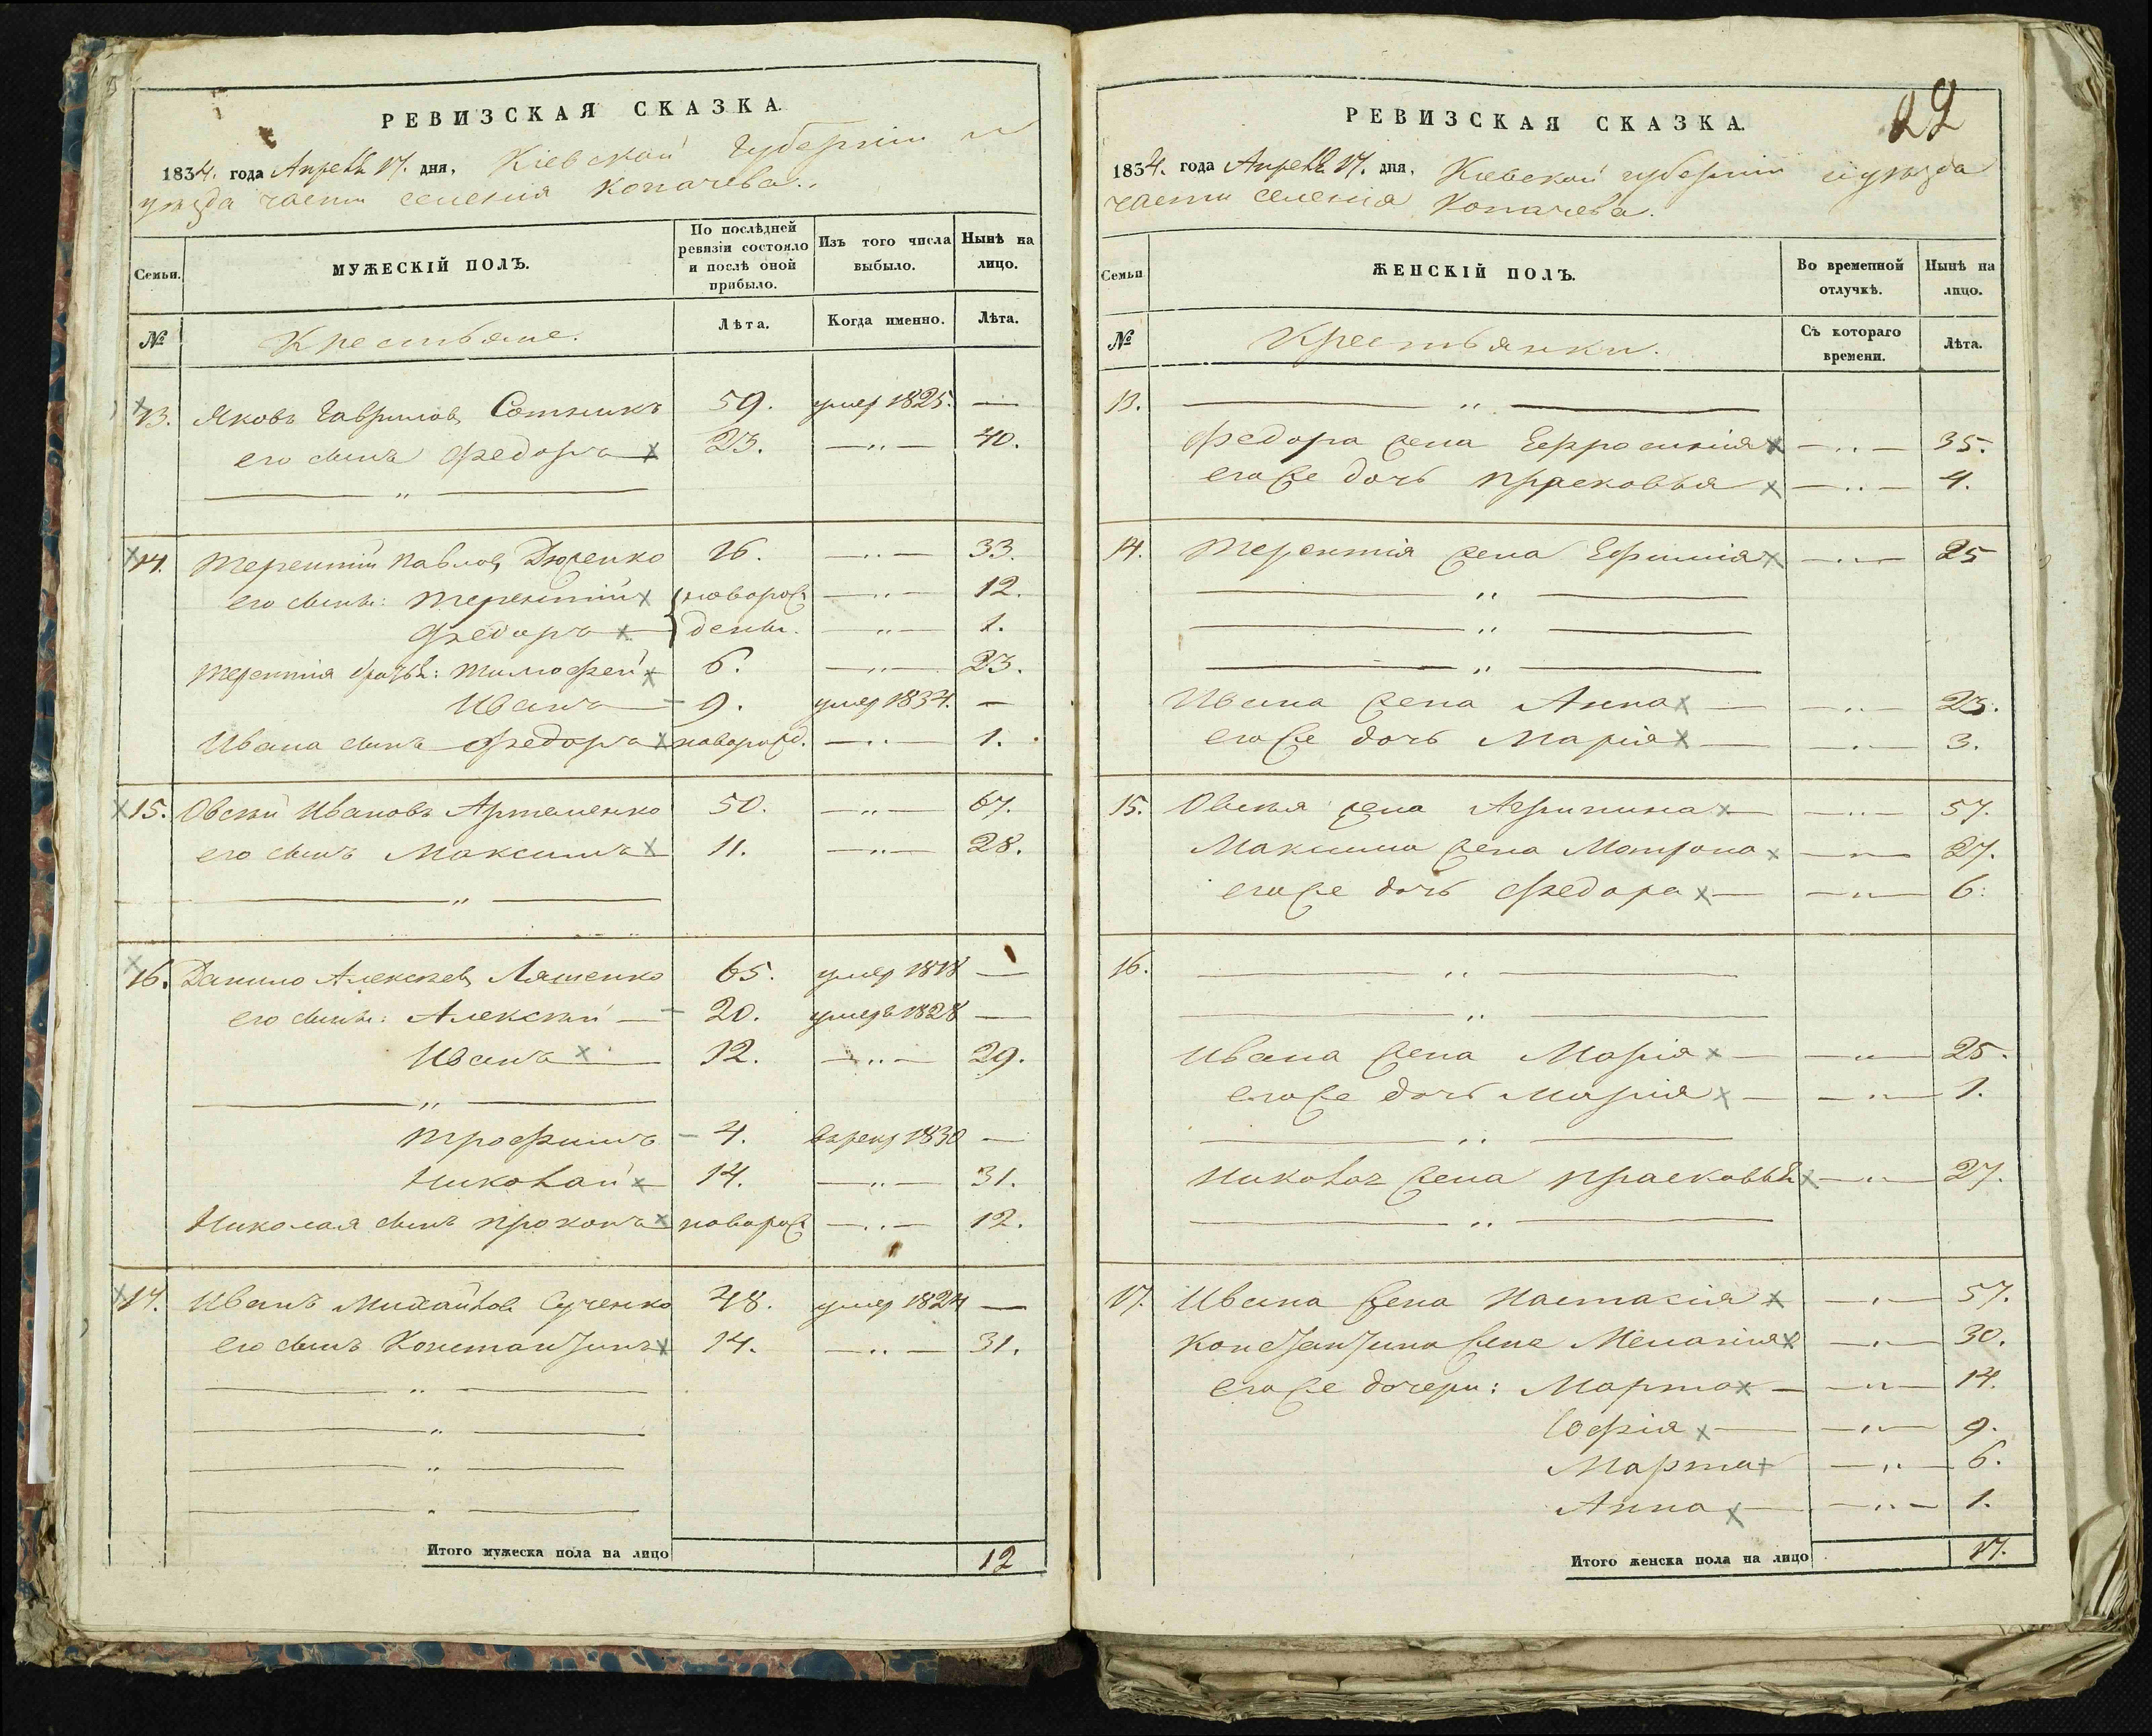 РЕВИЗСКАЯ СКАЗКА.
1834. года Апреля 17. дня, Кіевской губерніи и
уѣзда части селенія Копачева.
Семьи.
МУЖЕСКІЙ ПОЛЪ.
По послѣдней ревизіи состояло и послѣ оной прибыло.
Изъ того числа выбыло.
Нынѣ на лицо.
№
Крестьяне.
Лѣта.
Когда именно.
Лѣта.
13. Яковъ Гаврилов Сотникъ 59. умер 1825. —
его сынъ Федоръ 23. —„— 40.
— „ —
14. Терентій Павлов 16. —„— 33.
его сыны: Терентій новорож —„— 12.
Федоръ дены. —„— 1.
Терентія братья: Тимофей 6. —„— 23.
Иванъ 9. умер 1834. —
Ивана сынъ Федоръ новорожд. —„— 1.
15. Овсѣй Ивановъ Артеменко 50. —„— 67.
его сынъ Максимъ 11. —„— 28.
— „ —
16. Данило Алексѣев Ляшенко 65. умер 1818 —
его сыны: Алексѣй 20. умеръ 1828 —
Иванъ 12. —„— 29.
— „ —
Трофимъ 4. 1830 —
Николай 14. —„— 31.
Николая сынъ Прокопъ новорож —„— 12.
17. Иванъ Михайлов Сученко 48. умер 1824 —
его сынъ Константинъ 14. —„— 31.
— „ —
— „ —
— „ —
— „ —
Итого мужеска пола на лицо 12
22
РЕВИЗСКАЯ СКАЗКА.
1834. года Апреля 17. дня, Кіевской губерніи и уѣзда
части селенія Копачева.
Семьи
ЖЕНСКІЙ ПОЛЪ.
Во временной отлучкѣ.
Нынѣ на лицо.
№
Крестьянки.
Съ котораго времени.
Лѣта.
13. — „ —
Федора жена Ефросинія —„— 35.
его же дочь Прасковья —„— 4.
14. Терентія жена Ефимія —„— 25
— „ —
— „ —
— „ —
Ивана жена Анна —„— 23.
его же дочь Марія —„— 3.
15. Овсѣя жена Агрипина —„— 57.
Максима жена Матрона —„— 27.
его же дочь Федора —„— 6.
16. — „ —
— „ —
Ивана жена Марія —„— 25.
его же дочь Марія —„— 1.
— „ —
Николая жена Прасковья —„— 27.
— „ —
17. Ивана жена Настасія —„— 57.
Константина жена Меланія —„— 30.
его же дочери: Марта —„— 14.
Софія —„— 9.
Марта —„— 6.
Анна —„— 1.
Итого женска пола на лицо 17.